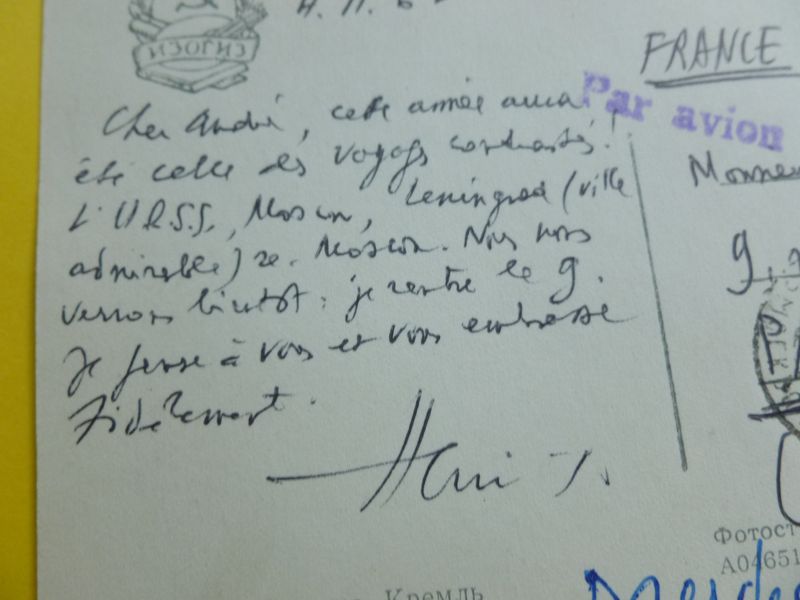 ИЗОГИЗ
FRANCE
Par avion
Cher André, cette année aura
été celle des voyages contrastés!
L'U.R.S.S., Moscou, Leningrad (ville
admirable) re-Moscou. Nous nous
verrons bientôt : je rentre le 9.
Je pense à vous et vous embrasse
Fidèlement.
Henri
9,
Фотост
А04651
Кремль